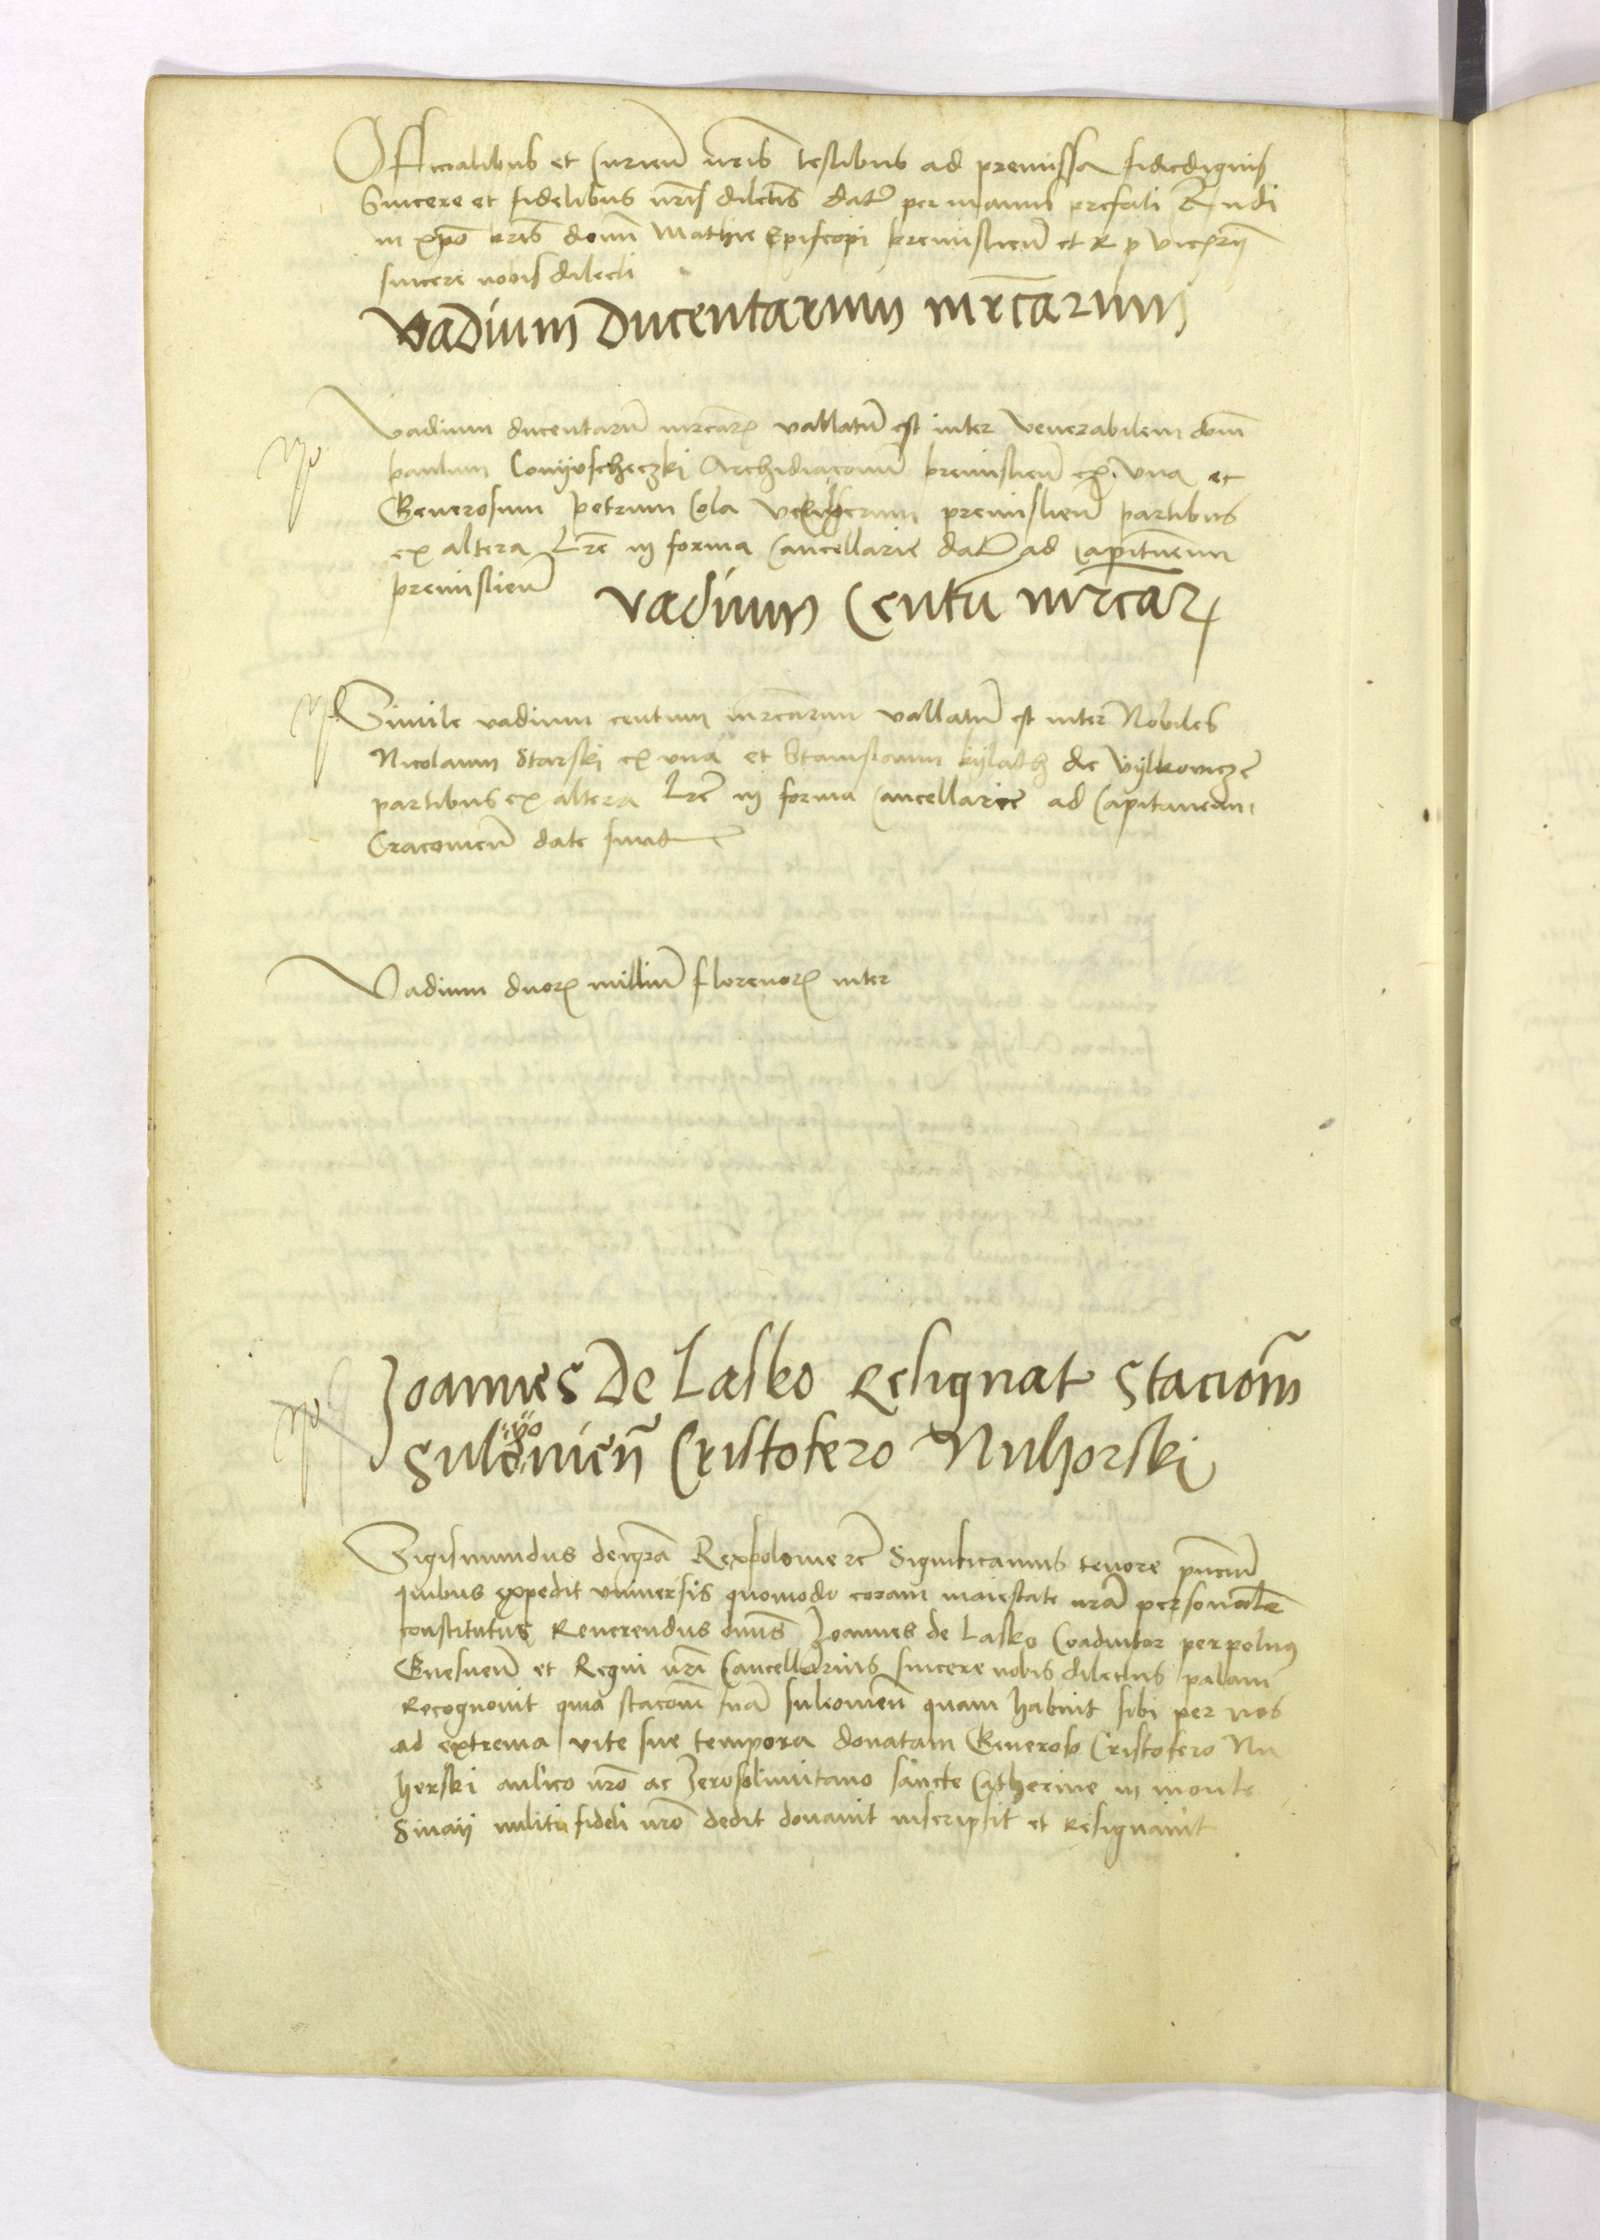 Officialibus et Curien̄ nr̄is testibus ad premissa fidedignis
Sincere et fidelibus nr̄is dilectis datū per manus prefati R̄ndi
in xp̄o pr̄is domī Mathie Episcopi premislien̄ et R p vicecʒrii
sincere nobis dilecti
Vadium Ducentarum mr̄carum
Vadium ducentarū mr̄carꝝ vallatū est inter Venerabilem domī
paulum Conyvscheczki Archidiaconū premislien̄ ex una et
Generosum petrum Cola vexiferum premislien̄ partibus
ex altera Lr̄e in forma Cancellarie datū ad Capitaneum
premislien̄
Vadium Centū mr̄carꝝ
Simile vadium centum mr̄carum vallatū est inter Nobiles
Nicolaum Starski ex una et Stanislaum kylath de Vylkovicze
partibus ex altera Lr̄e in forma Cancellarie ad Capitaneum
Cracovien̄ date sunt
Vadium duorꝝ milliū florenorꝝ inter
Joannes De Lasko Resignat Stacionē
Sulyovien̄ Cristofero Nuhorski
Sigismundus dei gr̄a Rex polonie etc Significamus tenore pn̄ciū
quibus expedit universis quomodo coram maiestate nr̄a personalr̄
constitutus Reverendus dn̄us Joannes de Lasko Coadiutor perpetuus
Gnesnen̄ et Regni nr̄i Cancellarius sincere nobis dilectus palam
recognovit quia stacionē suā sulyovien̄ quam habuit sibi per nos
ad extrema vite sue tempora donatam Generoso Cristofero Nu
herski aulico nr̄o ac Jerosolimitano sancte Catherine in monte
Sinaii militi fideli nr̄o dedit donavit inscripsit et Resignavit